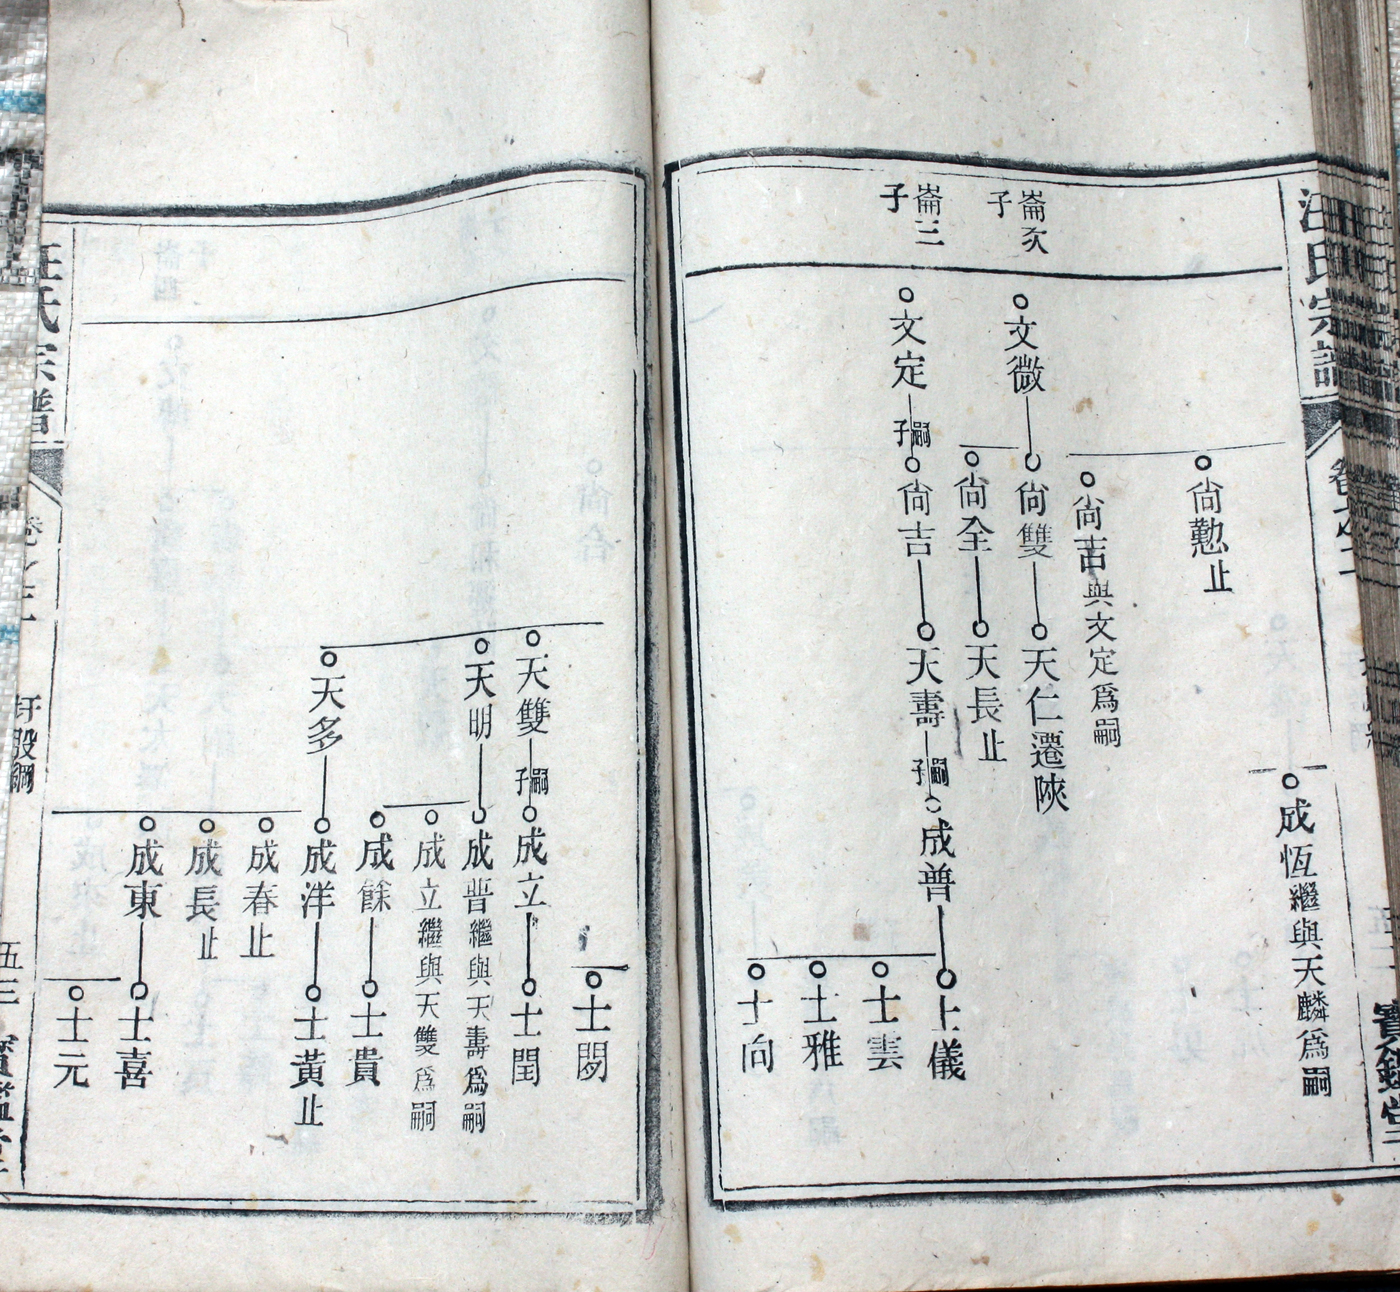 汪氏宗譜
成恆繼與天麟爲嗣
尙懃止
尙吉與文定爲嗣
崙次子
文微
尙雙
天仁遷陝
尙全
天長止
崙三子
文定
嗣子
尙吉
天壽
嗣子
成普
士儀
士雲
士雅
士向
士閉
天雙
嗣子
成立
士閏
天明
成普繼與天壽爲嗣
成立繼與天雙爲嗣
成餘
士貴
天多
成洋
士黃止
成春止
成長止
成東
士喜
士元
汪氏宗譜
五三